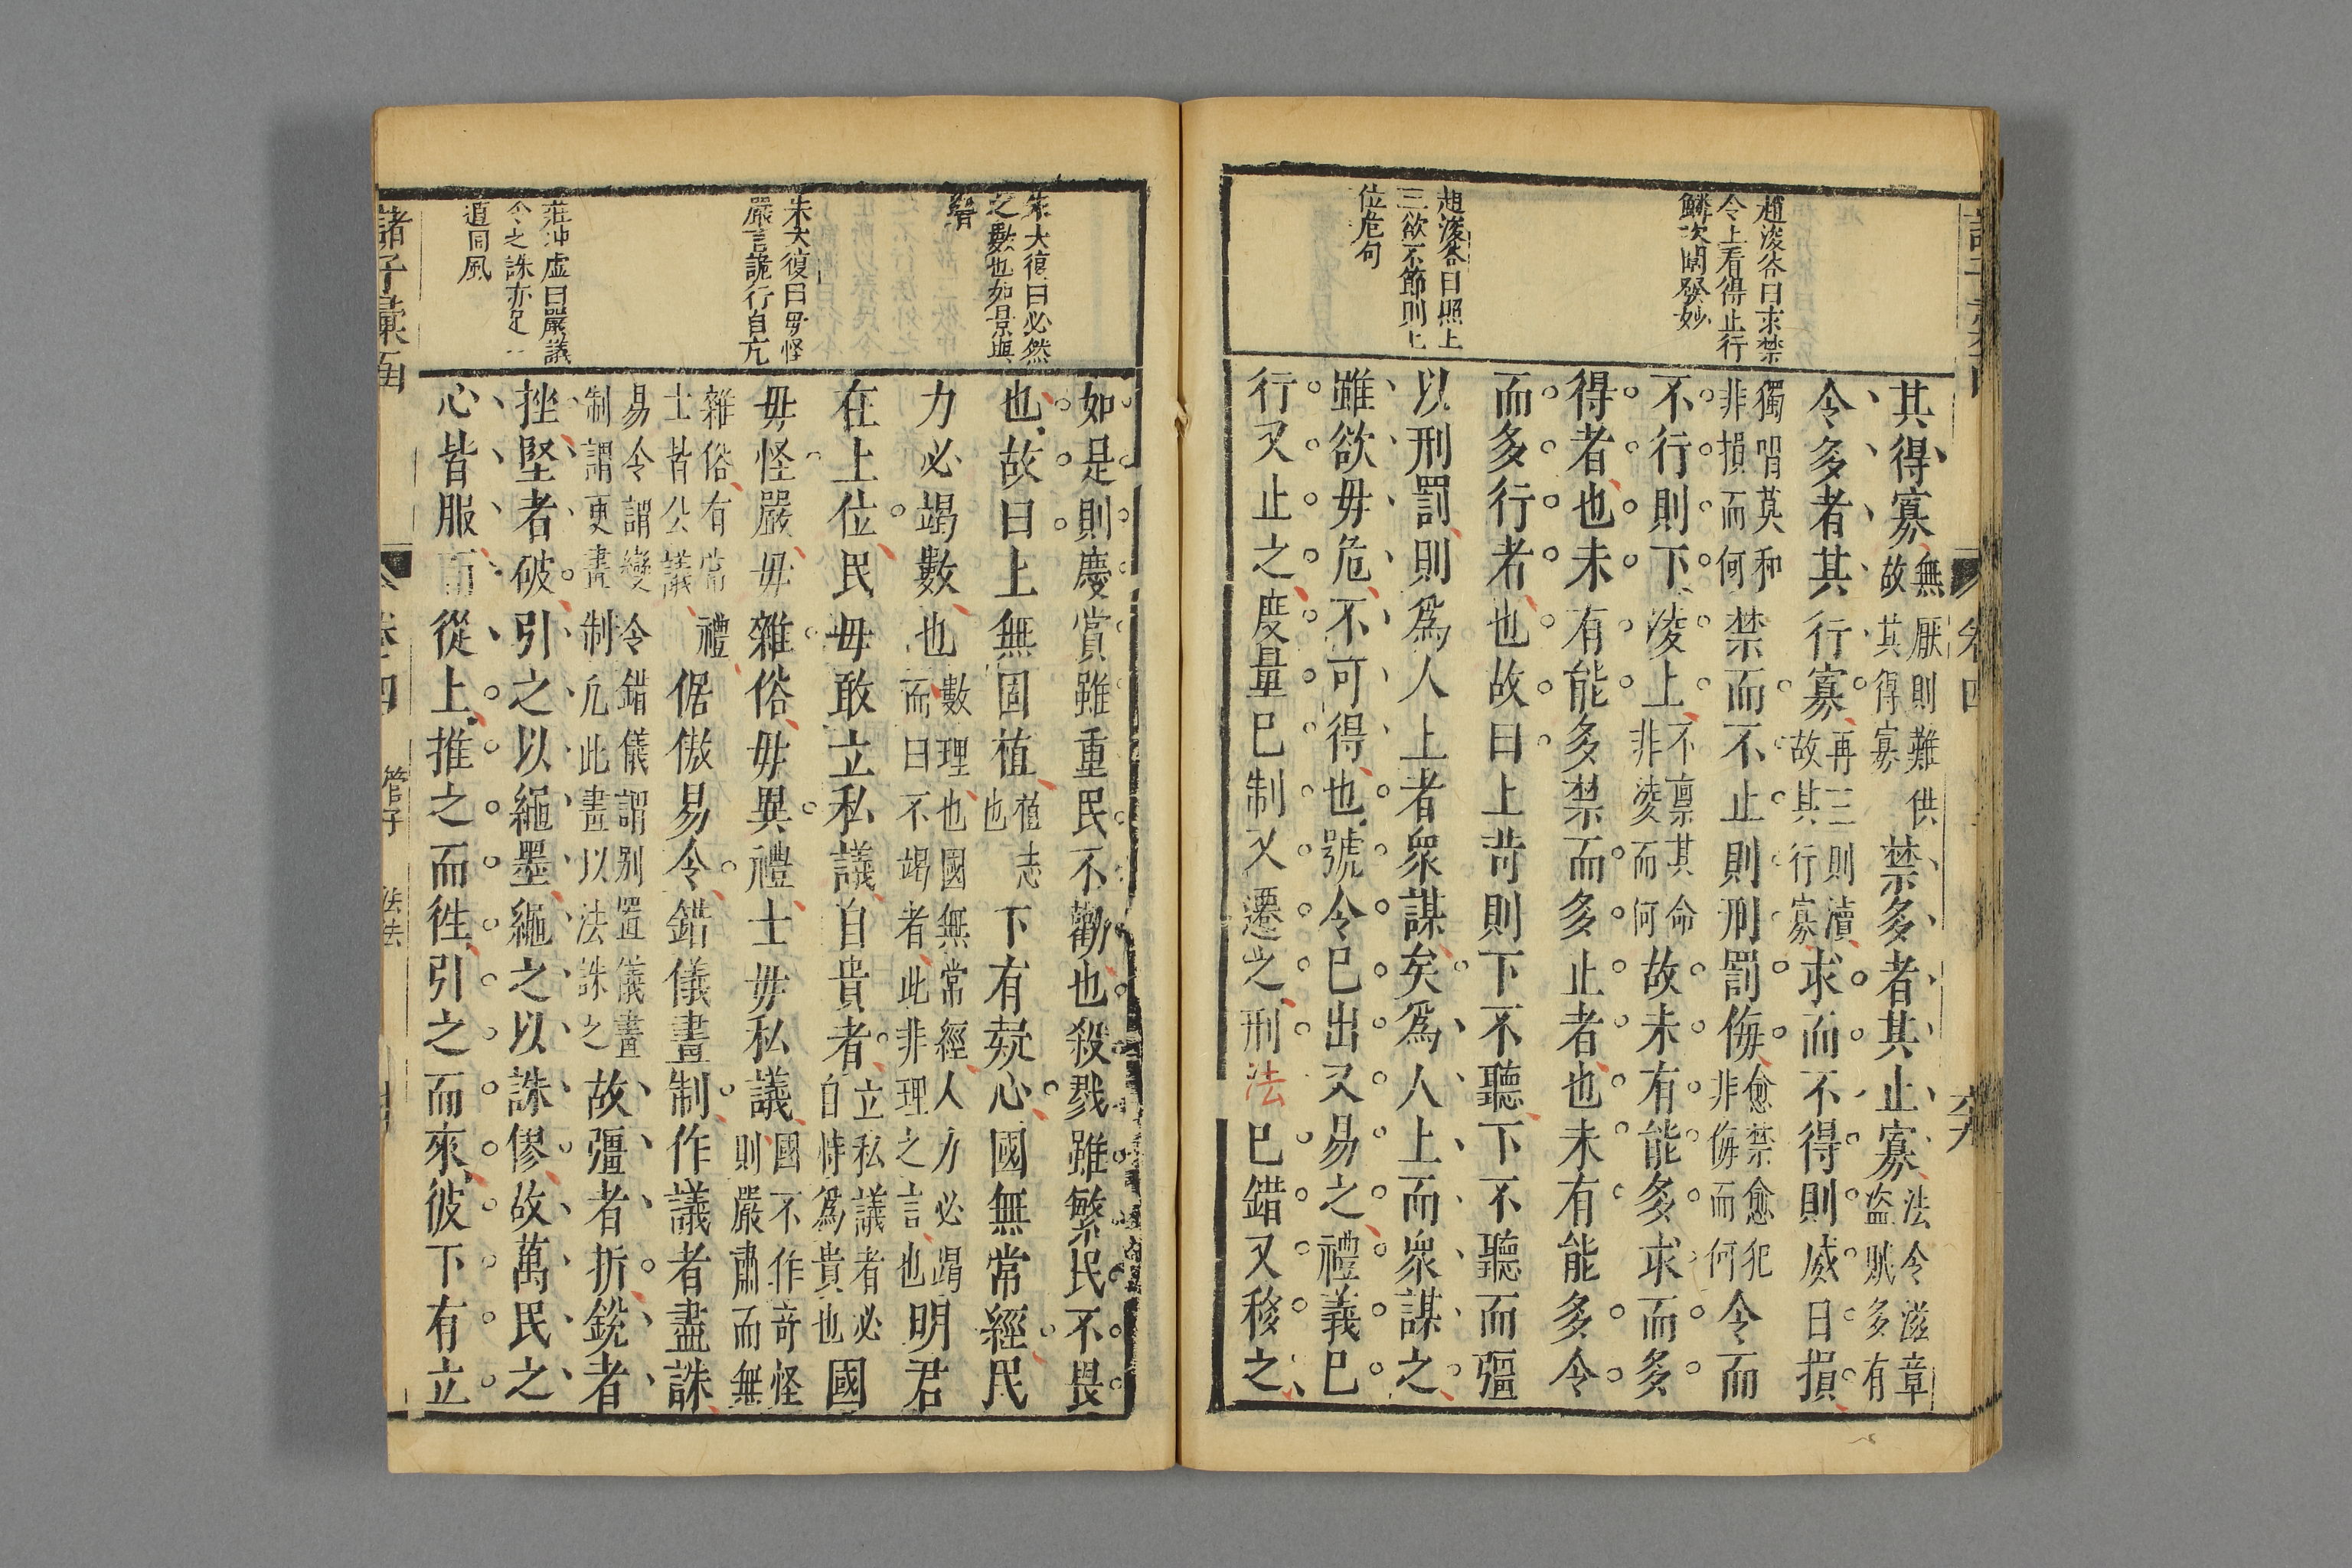 趙浚谷曰求禁
令上看得止行
鱗次開發妙
趙浚谷曰照上
三欲不節則上
位危句
其得寡無厭則難供故其得寡禁多者其止寡法令滋章盜賊多有
令多者其行寡再三則瀆故其行寡求而不得則威日損
獨唱莫和非損而何禁而不止則刑罰侮愈禁愈犯非侮而何令而
不行則下淩上不禀其命非淩而何故未有能多求而多
得者也未有能多禁而多止者也未有能多令
而多行者也故曰上苛則下不聽下不聽而彊
以刑罰則爲人上者衆謀矣爲人上而衆謀之
雖欲毋危不可得也號令已出又易之禮義已
行又止之度量已制又遷之刑法已錯又移之
卷四
朱大復曰必然
之數也如景與
響
朱大復曰毋怪
嚴言詭行自亢
莊冲虛曰嚴議
令之誅亦足一
道同風
如是則慶賞雖重民不勸也殺戮雖繁民不畏
也故曰上無固植植志也下有疑心國無常經民
力必竭數也數理也國無常經人力必竭而曰不竭者此非理之言也明君
在上位民毋敢立私議自貴者立私議者必自恃爲貴也國
毋怪嚴毋雜俗毋異禮士毋私議國不作奇怪則嚴肅而無
雜俗有常禮士皆公議倨傲易令錯儀畫制作議者盡誅
易令謂變令錯儀謂別置儀畫制謂更畫制凡此畫以法誅之故彊者折銳者
挫堅者破引之以繩墨繩之以誅僇故萬民之
心皆服而從上推之而徃引之而來彼下有立
諸子彙函
卷四
管子
法法